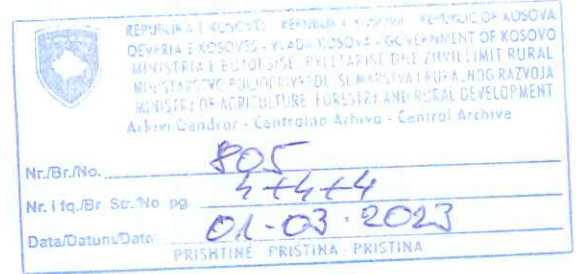 REPUBLIKA E KOSOVËS - REPUBLIKA KOSOVA - REPUBLIC OF KOSOVA
QEVERIA E KOSOVËS - VLADA KOSOVA - GOVERNMENT OF KOSOVO
MINISTRIA E BUJQËSISË, PYLLTARISË DHE ZHVILLIMIT RURAL
MINISTARSTVO POLJOPRIVREDE, ŠUMARSTVA I RURALNOG RAZVOJA
MINISTRY OF AGRICULTURE, FORESTRY AND RURAL DEVELOPMENT
Arkivi Qendror - Centralna Arhiva - Central Archive
Nr./Br./No. 805
Nr. i fq./Br. Str./No. pg. 4+4+4
Data/Datum/Date: 01-03-2023
PRISHTINË PRISTINA PRISTINA